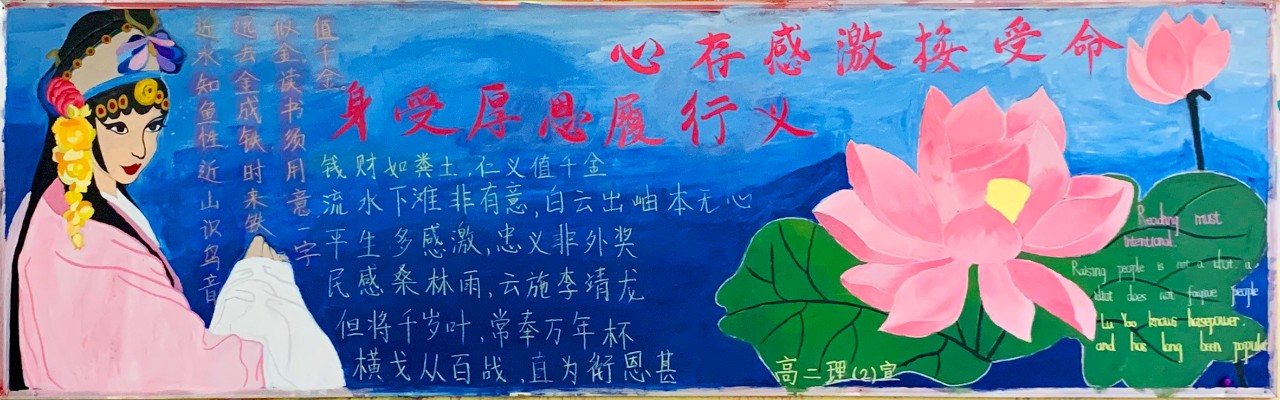 心存感激接受命
身受厚恩履行义
近水知鱼性近山识鸟音
远去金成铁时来铁
似金读书须用意一字
值千金
钱财如粪土,仁义值千金
流水下滩非有意,白云出岫本无心
平生多感激,忠义非外奖
民感桑林雨,云施李靖龙
但将千岁叶,常奉万年杯
横戈从百战,直为衔恩甚
高二理(2)宣
Reading must
Intentional.
Raising people is not a idiot. a
idiot does not forgive people
Lu Yao knows horsepower.
and has long been popular